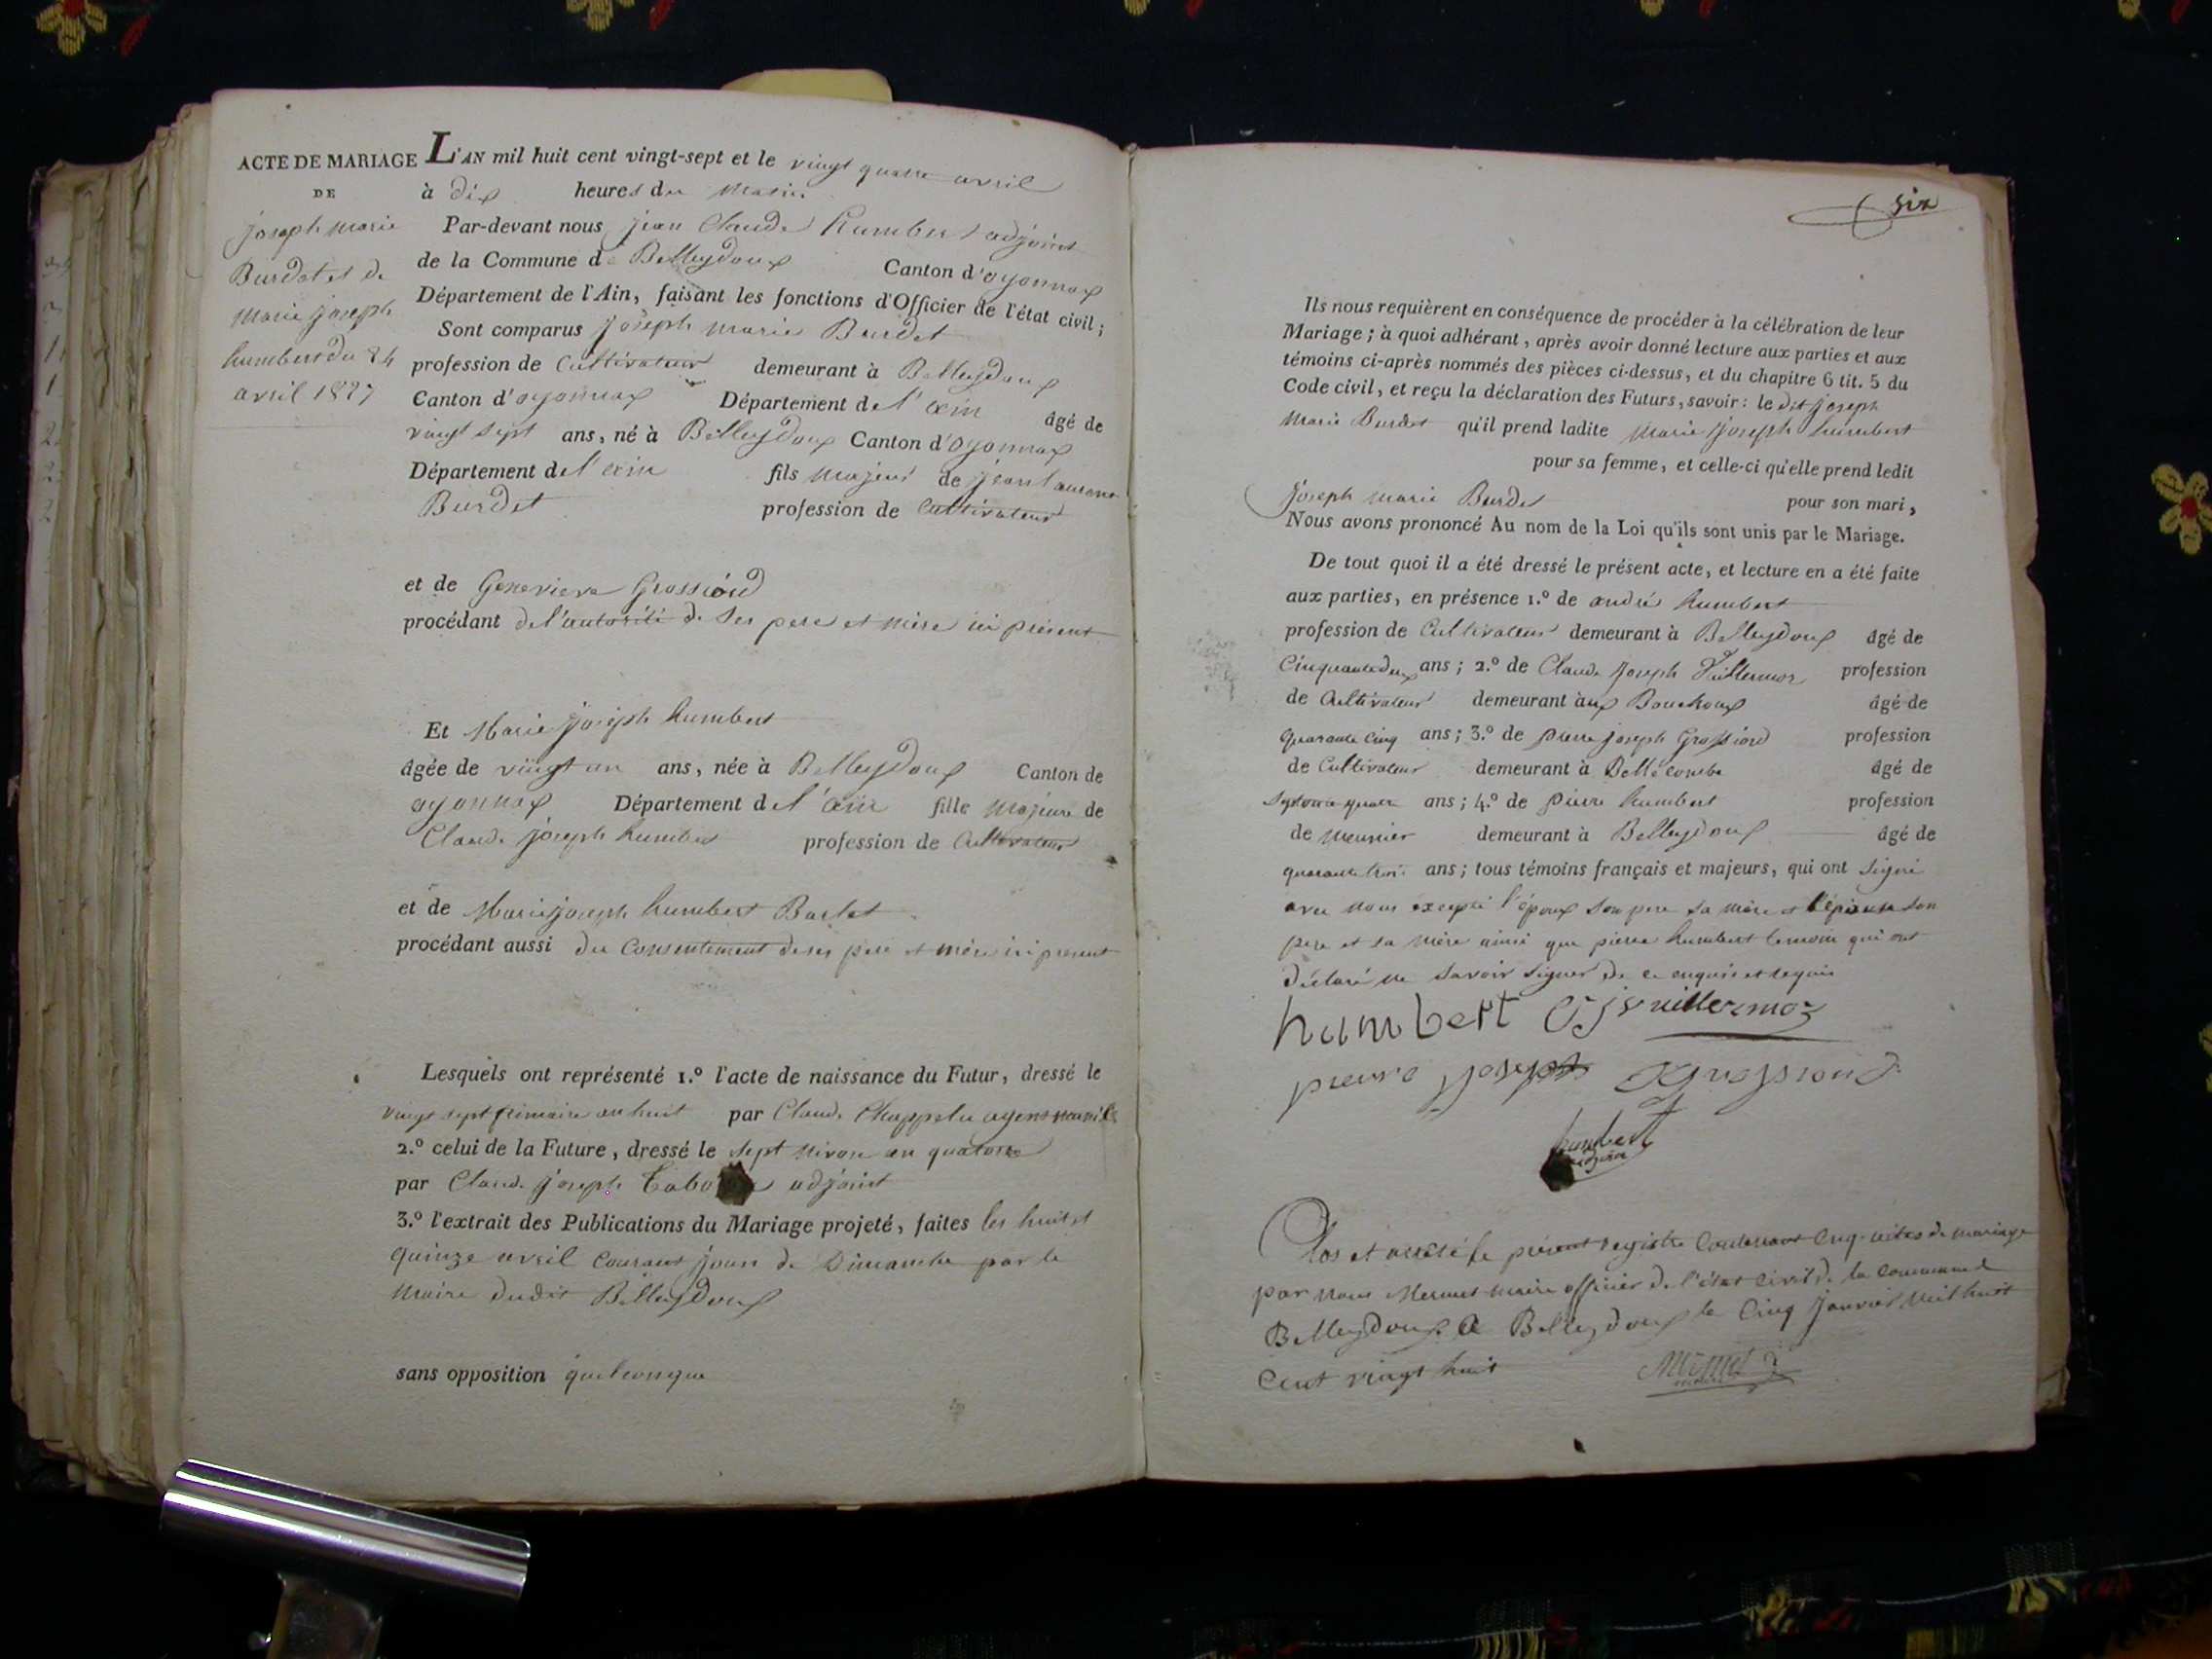 ACTE DE MARIAGE
DE
joseph marie
Burdet et de
marie joseph
humbert du 24
avril 1827
L'AN mil huit cent vingt-sept et le vingt quatre avril
à dix heures du matin
Par-devant nous jean Claude humbert adjoint
de la Commune de Belleydoux Canton d'oyonnax
Département de l'Ain, faisant les fonctions d'Officier de l'état civil;
Sont comparus joseph marie Burdet
profession de Cultivateur demeurant à Belleydoux
Canton d'oyonnax Département de l'ain âgé de
vingt sept ans, né à Belleydoux Canton d'oyonnax
Département de l'ain fils majeur de jean laurent
Burdet profession de Cultivateur
et de Genevieve Grossiord
procédant de l'autorité de ses pere et mère ici présent
Et Marie joseph humbert
âgée de vingt un ans, née à Belleydoux Canton de
oyonnax Département de l'ain fille majeure de
Claude joseph humbert profession de Cultivateur
et de Marie joseph humbert Barlet
procédant aussi du Consentement de ses pere et mère ici present
Lesquels ont représenté 1.º l'acte de naissance du Futur, dressé le
vingt sept frimaire an huit par Claude Chappelu agent
2.º celui de la Future, dressé le sept nivose an quatorze
par Claude joseph adjoint
3.º l'extrait des Publications du Mariage projeté, faites les huit et
quinze avril Courant jours de Dimanche par le
maire dudit Belleydoux
sans opposition quelconque
six
Ils nous requièrent en conséquence de procéder à la célébration de leur
Mariage; à quoi adhérant, après avoir donné lecture aux parties et aux
témoins ci-après nommés des pièces ci-dessus, et du chapitre 6 tit. 5 du
Code civil, et reçu la déclaration des Futurs, savoir: le dit joseph
marie Burdet qu'il prend ladite marie joseph humbert
pour sa femme, et celle-ci qu'elle prend ledit
joseph marie Burdet pour son mari,
Nous avons prononcé Au nom de la Loi qu'ils sont unis par le Mariage.
De tout quoi il a été dressé le présent acte, et lecture en a été faite
aux parties, en présence 1.º de andré humbert
profession de Cultivateur demeurant à Belleydoux âgé de
Cinquante deux ans; 2.º de Claude joseph Vuillermoz profession
de Cultivateur demeurant aux Bouchoux âgé de
quarante cinq ans; 3.º de pierre joseph Grossiord profession
de Cultivateur demeurant à Bellecombe âgé de
ans; 4.º de pierre humbert profession
de meunier demeurant à Belleydoux âgé de
quarante trois ans; tous témoins français et majeurs, qui ont signé
avec nous excepté l'époux son pere sa mère et l'épouse son
pere et sa mère ainsi que pierre humbert temoin qui ont
déclaré ne savoir signer de ce enquis et requis
humbert C j vuillermoz
pierre joseph Grossiord
humbert
adjoint
Clos et arrêté le présent registre Contenant Cinq actes de mariage
par nous Mermet maire officier de l'état Civil de la Commune de
Belleydoux. a Belleydoux le Cinq janvier mil huit
Cent vingt huit Mermet
maire